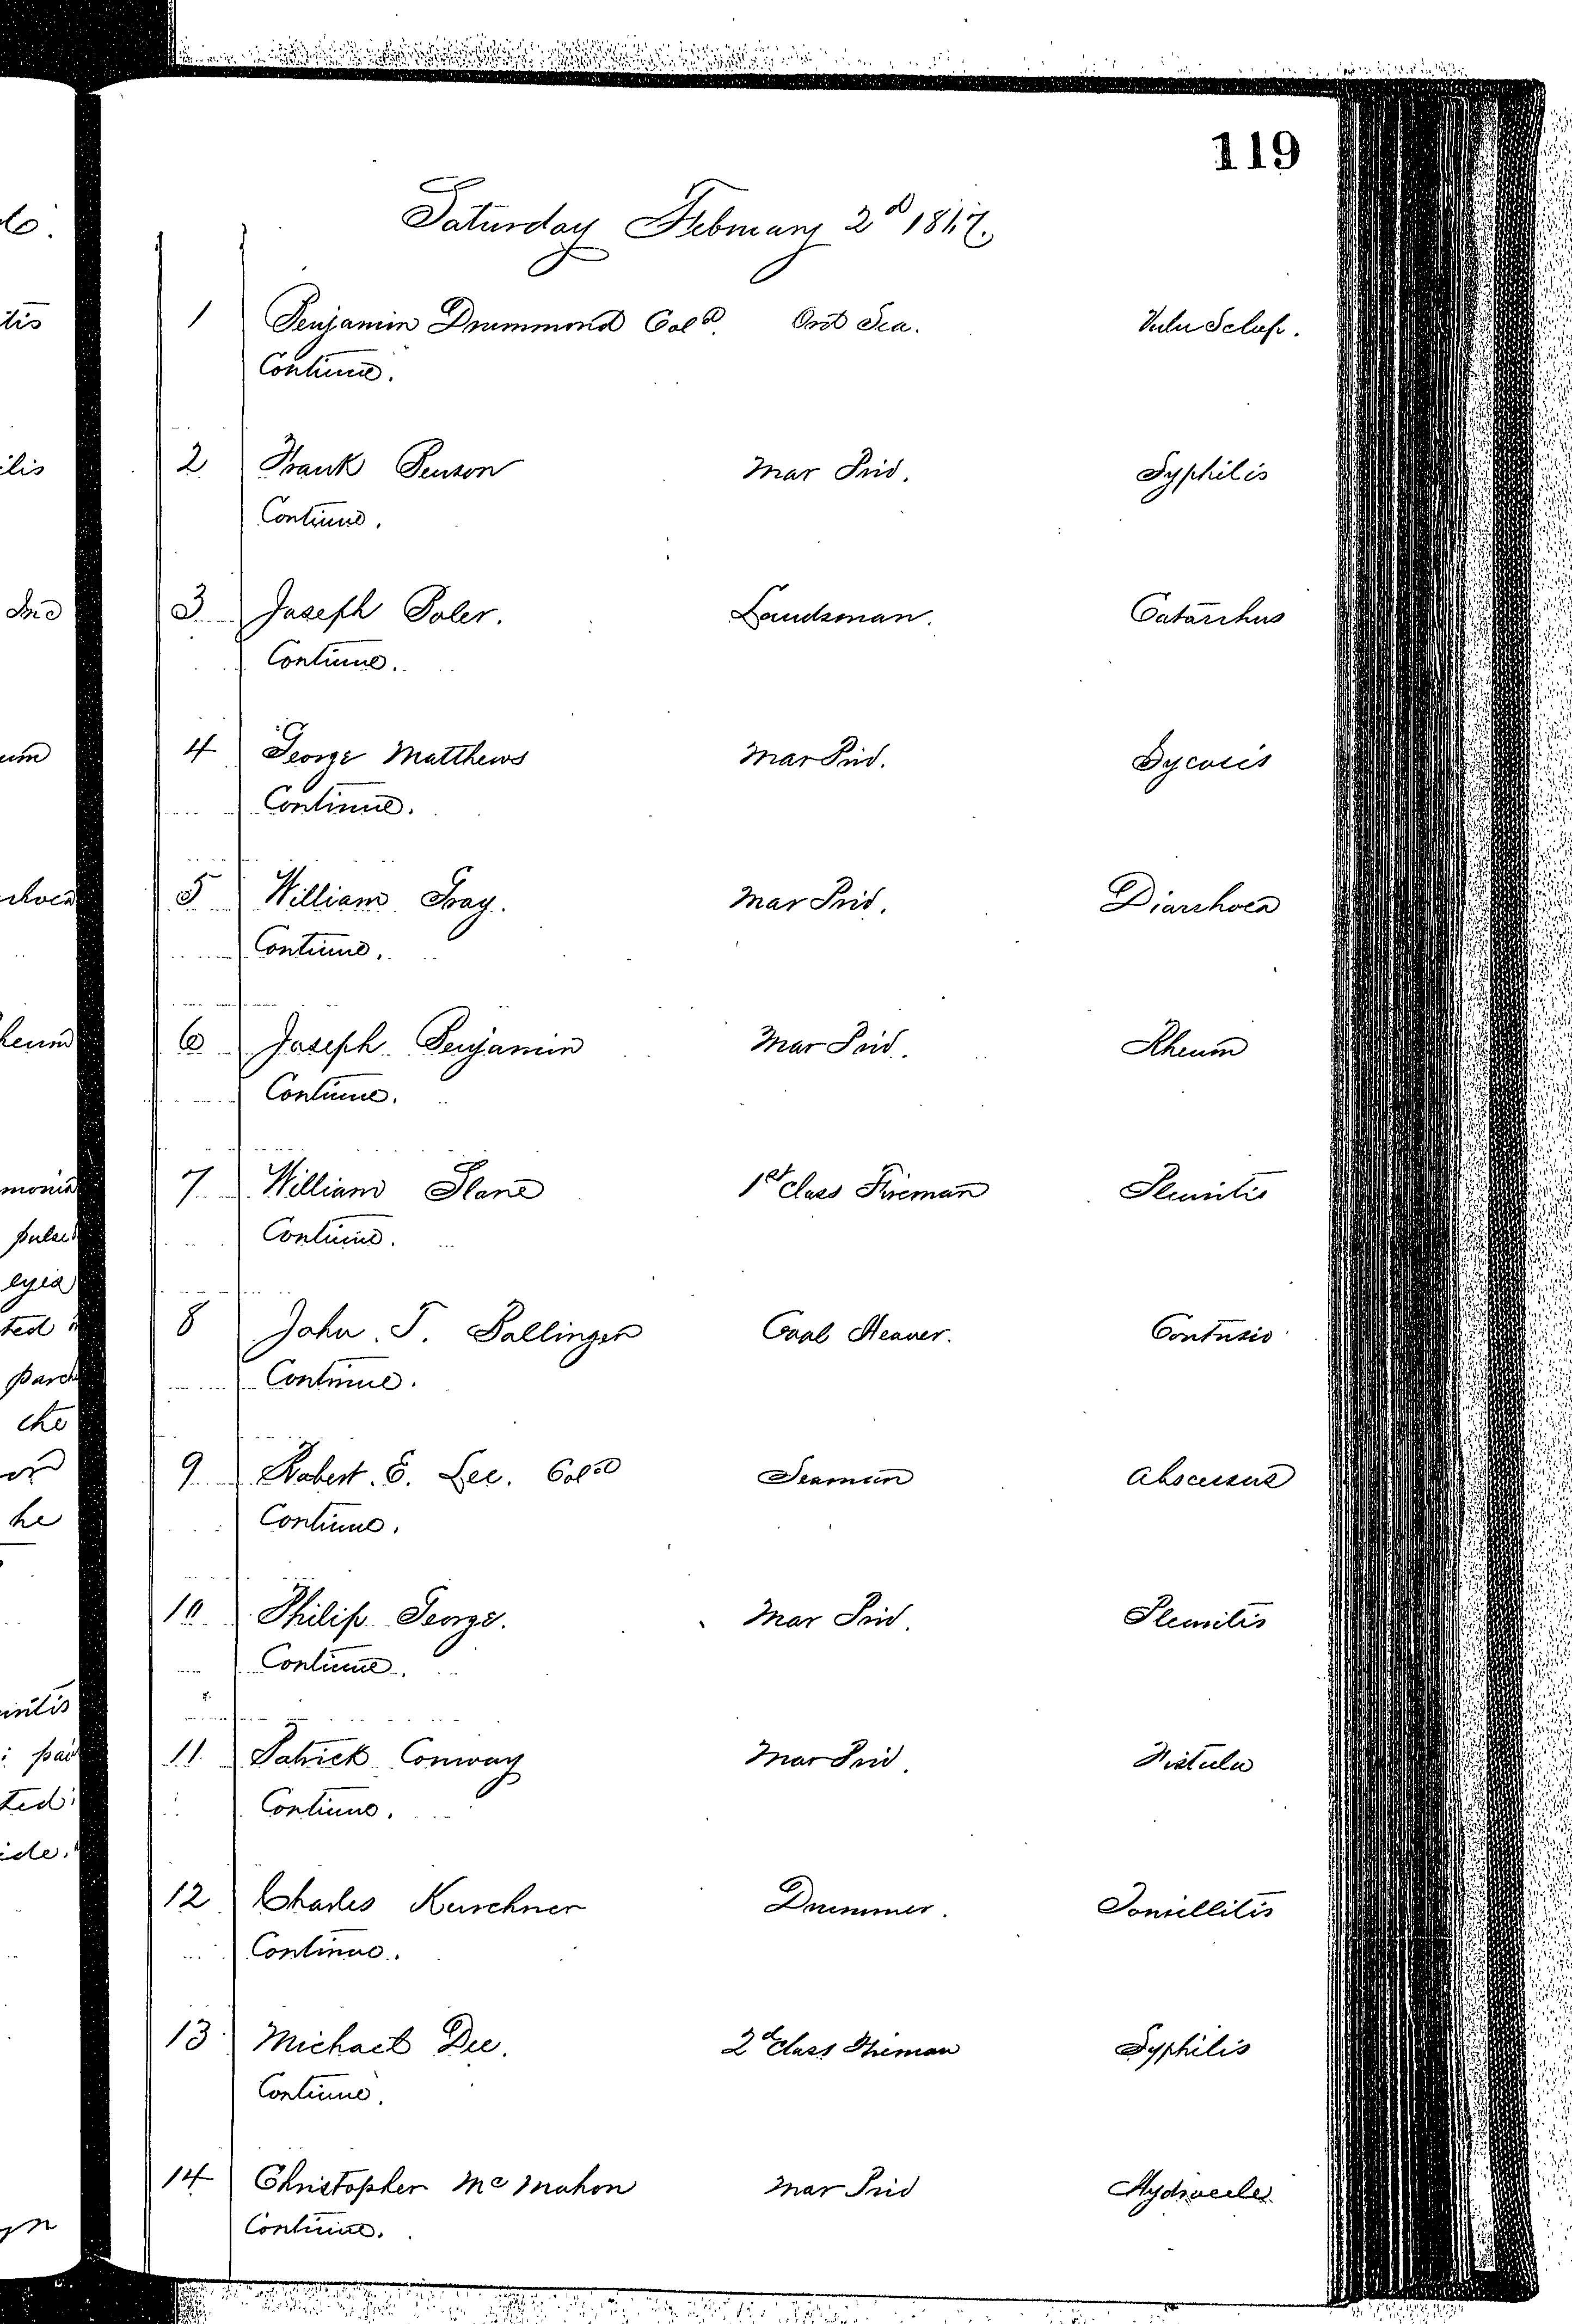 119
Saturday February 2d 1867.
1 Benjamin Drummond Cold. Ord Sea. Vuln Sclop.
Continue.
2 Frank Benson Mar Priv. Syphilis
Continue.
3 Joseph Boler. Landsman. Catarrhus
Continue.
4 George Matthews Mar Priv. Sycosis
Continue.
5 William Gray. Mar Priv. Diarrhoea
Continue.
6 Joseph Benjamin Mar Priv. Rheum
Continue.
7 William Slane 1st Class Fireman Pleuritis
Continue.
8 John T. Ballinger Coal Heaver. Contusio
Continue.
9 Robert E. Lee. Cold Seaman Abscessus
Continue.
10 Philip George. Mar Priv. Pleuritis
Continue.
11 Patrick Conway Mar Priv. Fistula
Continue.
12 Charles Kurchner Drummer. Tonsillitis
Continue.
13 Michael Dee. 2d Class Fireman Syphilis
Continue.
14 Christopher McMahon Mar Priv Hydrocele
Continue.